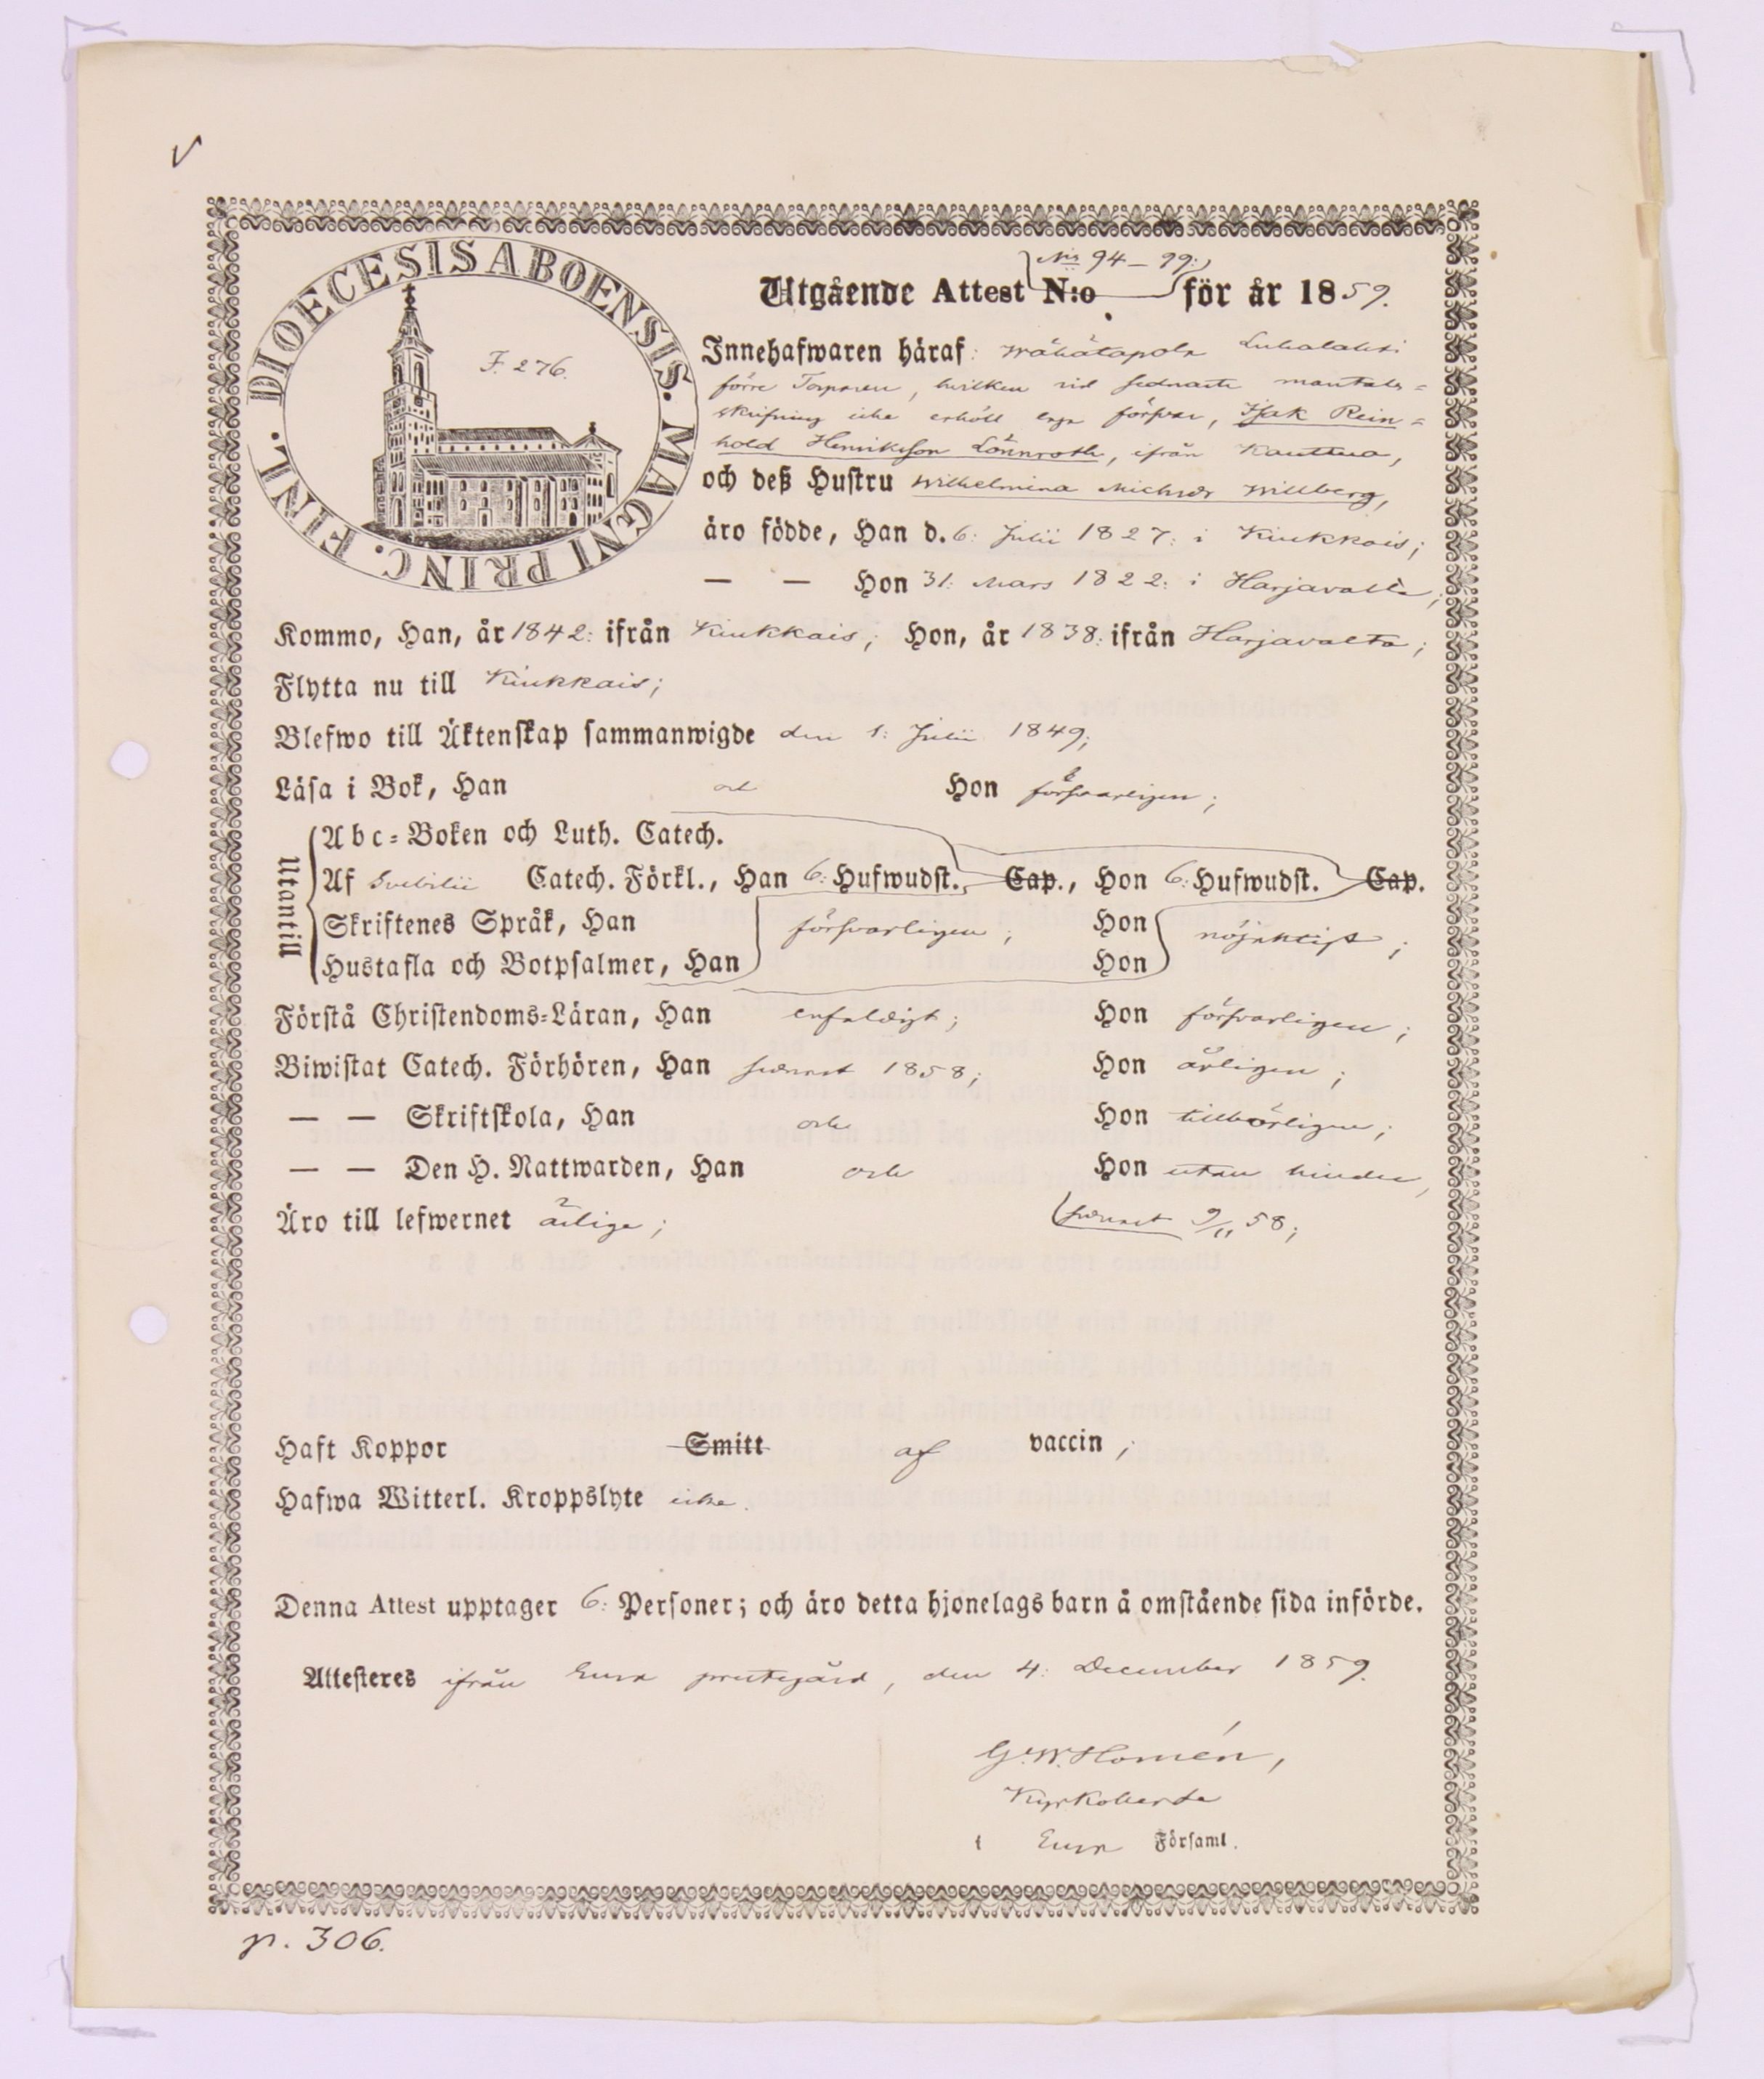 ✓
DIOECESIS ABOENSIS. MAGNI PRINC. FINL.
F. 276.
N:is 94–99:
Utgående Attest N:o för år 1859.
Innehafwaren häraf: Wähätapola Luhalahti
förre Torparen, hvilken vid sednaste mantals-
skrifning icke erhöll laga försvar, Isak Rein-
hold Henriksson Lönnroth, ifrån Kauttua,
och deß Hustru Wilhelmina Michelsdr Willberg,
äro födde, Han d. 6: Julii 1827: i Kiukkais;
— — Hon 31: Mars 1822: i Harjavalta;
Kommo, Han, år 1842: ifrån Kiukkais; Hon, år 1838: ifrån Harjavalta;
Flytta nu till Kiukkais;
Blefwo till Äktenskap sammanwigde den 1: Julii 1849;
Läsa i Bok, Han och Hon försvarligen;
Utantill
Abc-Boken och Luth. Catech.
Af Svebilii Catech. Förkl., Han 6: Hufwudst. Cap., Hon 6: Hufwudst. Cap.
Skriftenes Språk, Han försvarligen; Hon nöjaktigt;
Hustafla och Botpsalmer, Han Hon
Förstå Christendoms-Läran, Han enfaldigt; Hon försvarligen;
Biwistat Catech. Förhören, Han senast 1858; Hon årligen;
— — Skriftskola, Han och Hon tillbörligen;
— — Den H. Nattwarden, Han och Hon utan hinder,
Äro till lefwernet ärliga; senast 9/11 58;
Haft Koppor Smitt af vaccin;
Hafwa Witterl. Kroppslyte icke.
Denna Attest upptager 6: Personer; och äro detta hjonelags barn å omstående sida införde.
Attesteres ifrån Eura prestegård, den 4: December 1859.
G. W. Homén,
Kyrkoherde
i Eura Församl.
p. 306.